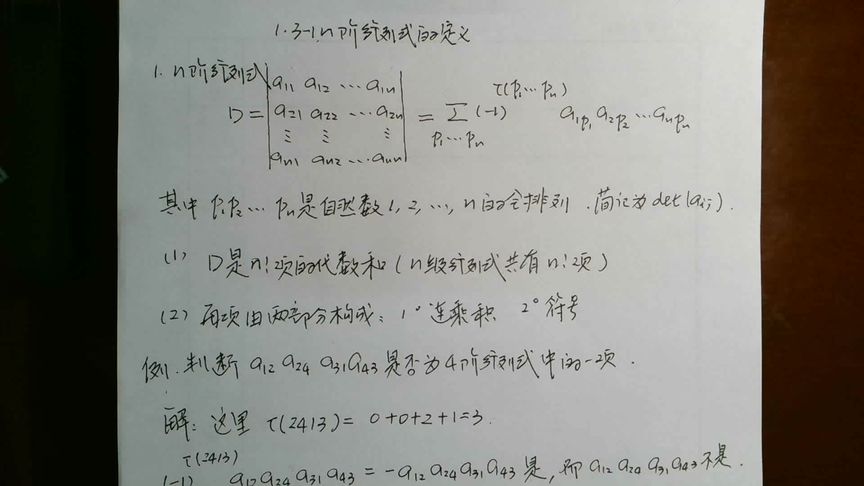 1.3-1 n阶行列式的定义
1. n阶行列式
D = | a₁₁ a₁₂ ⋯ a₁ₙ |
| a₂₁ a₂₂ ⋯ a₂ₙ |
| ⋮ ⋮ ⋮ |
| aₙ₁ aₙ₂ ⋯ aₙₙ | = Σ_{p₁⋯pₙ} (-1)^{τ(p₁⋯pₙ)} a_{1p₁} a_{2p₂} ⋯ a_{npₙ}
其中 p₁p₂⋯pₙ是自然数1,2,⋯,n的全排列.简记为det(aᵢⱼ).
(1) D是n!项的代数和(n级行列式共有n!项)
(2) 每项由两部分构成:1°连乘积 2°符号
例.判断 a₁₂ a₂₄ a₃₁ a₄₃是否为4阶行列式中的一项.
解:这里 τ(2413) = 0+0+2+1=3.
(-1)^{τ(2413)} a₁₂ a₂₄ a₃₁ a₄₃ = -a₁₂ a₂₄ a₃₁ a₄₃ 是,而 a₁₂ a₂₄ a₃₁ a₄₃ 不是.